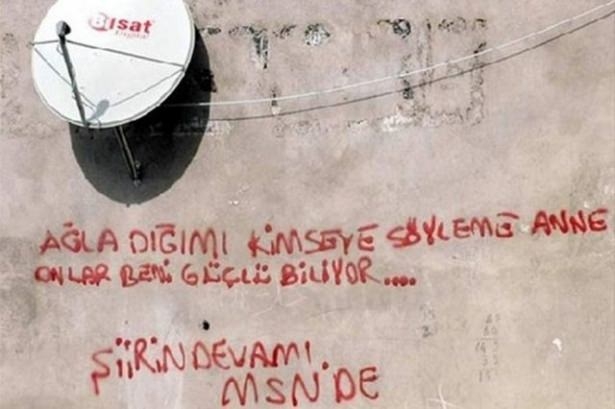 Bisat
AĞLA DIĞIMI KİMSEYE SÖYLEME ANNE
ONLAR BENİ GÜÇLÜ BİLİYOR....
ŞİİRİN DEVAMI.
MSN'DE